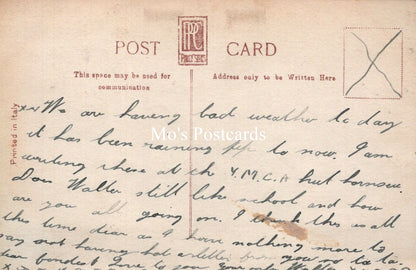 RPPC
POST CARD
This space may be used for communication
Address only to be Written Here
Printed in Italy
We are having bad weather to day
it has been raining up to now. I am
writing these at the Y.M.C.A hut
Does Walter still like school and how
are you all going on. I think this is all
this time dear as I have nothing more to
say not having had a letter from you
Love to you
Mo's Postcards